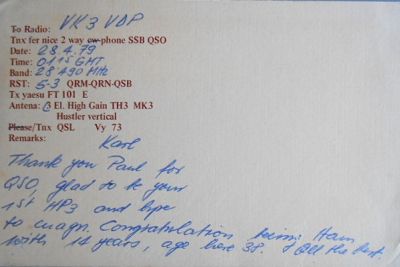 To Radio: VK3 VDP
Tnx fer nice 2 way cw-phone SSB QSO
Date: 28.4.79
Time: 0115 GMT
Band: 28 490 MHz
RST: 5-3 QRM-QRN-QSB
Tx yaesu FT 101 E
Antena: 3 El. High Gain TH3 MK3
Hustler vertical
Please/Tnx QSL Vy 73
Remarks: Karl
Thank you Paul for
QSO, glad to be your
1st HP3 and hpe
to cuagn. Congratulation being Ham
with 14 years, age here 38. All the best.